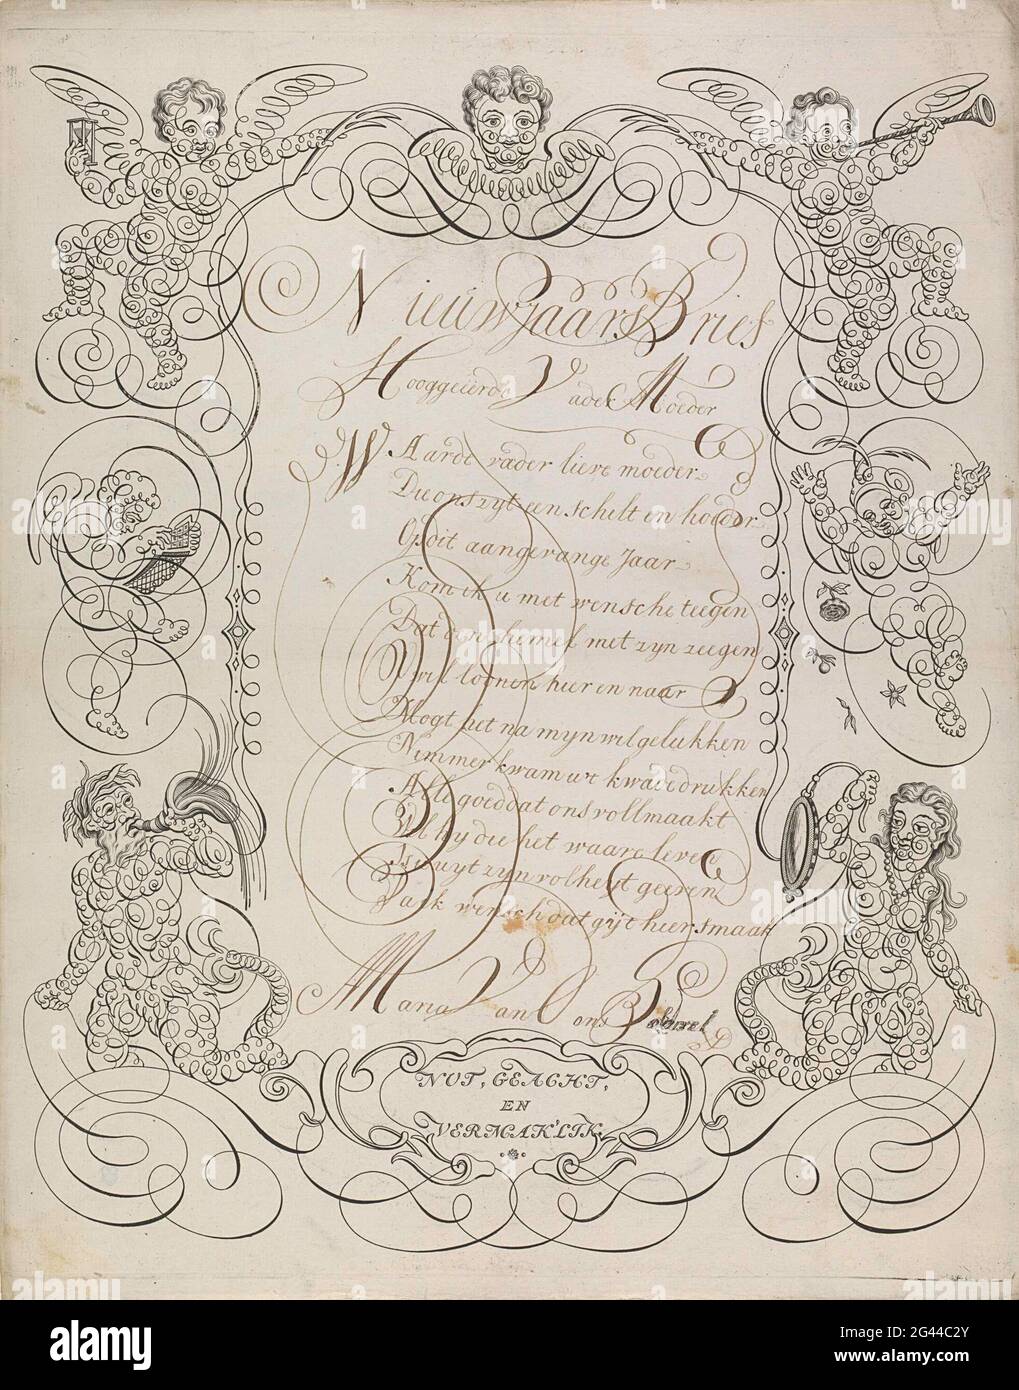 NieuwjaarsBrief
Hooggeeerde Vader Moeder
WAarde vader lieve moeder
Die ons zyt een schilt en hoeder
Op dit aangevange Jaar
Kom ik u met wensche teegen
Dat den hemel met zyn zeegen
U wil loonen hier en naar
Mogt het na myn wil gelukken
Nimmer kwam u't kwaad drukken
Alle goed dat ons vollmaakt
Wil hy die het waare leven
Is uyt zyn volheyt geeven
Dat ik wensch dat gyt heer smaak
Maria Van
NUT, GEACHT,
EN
VERMAK'LIJK
alamy
alamy
Image ID: 2G44C2Y
www.alamy.com